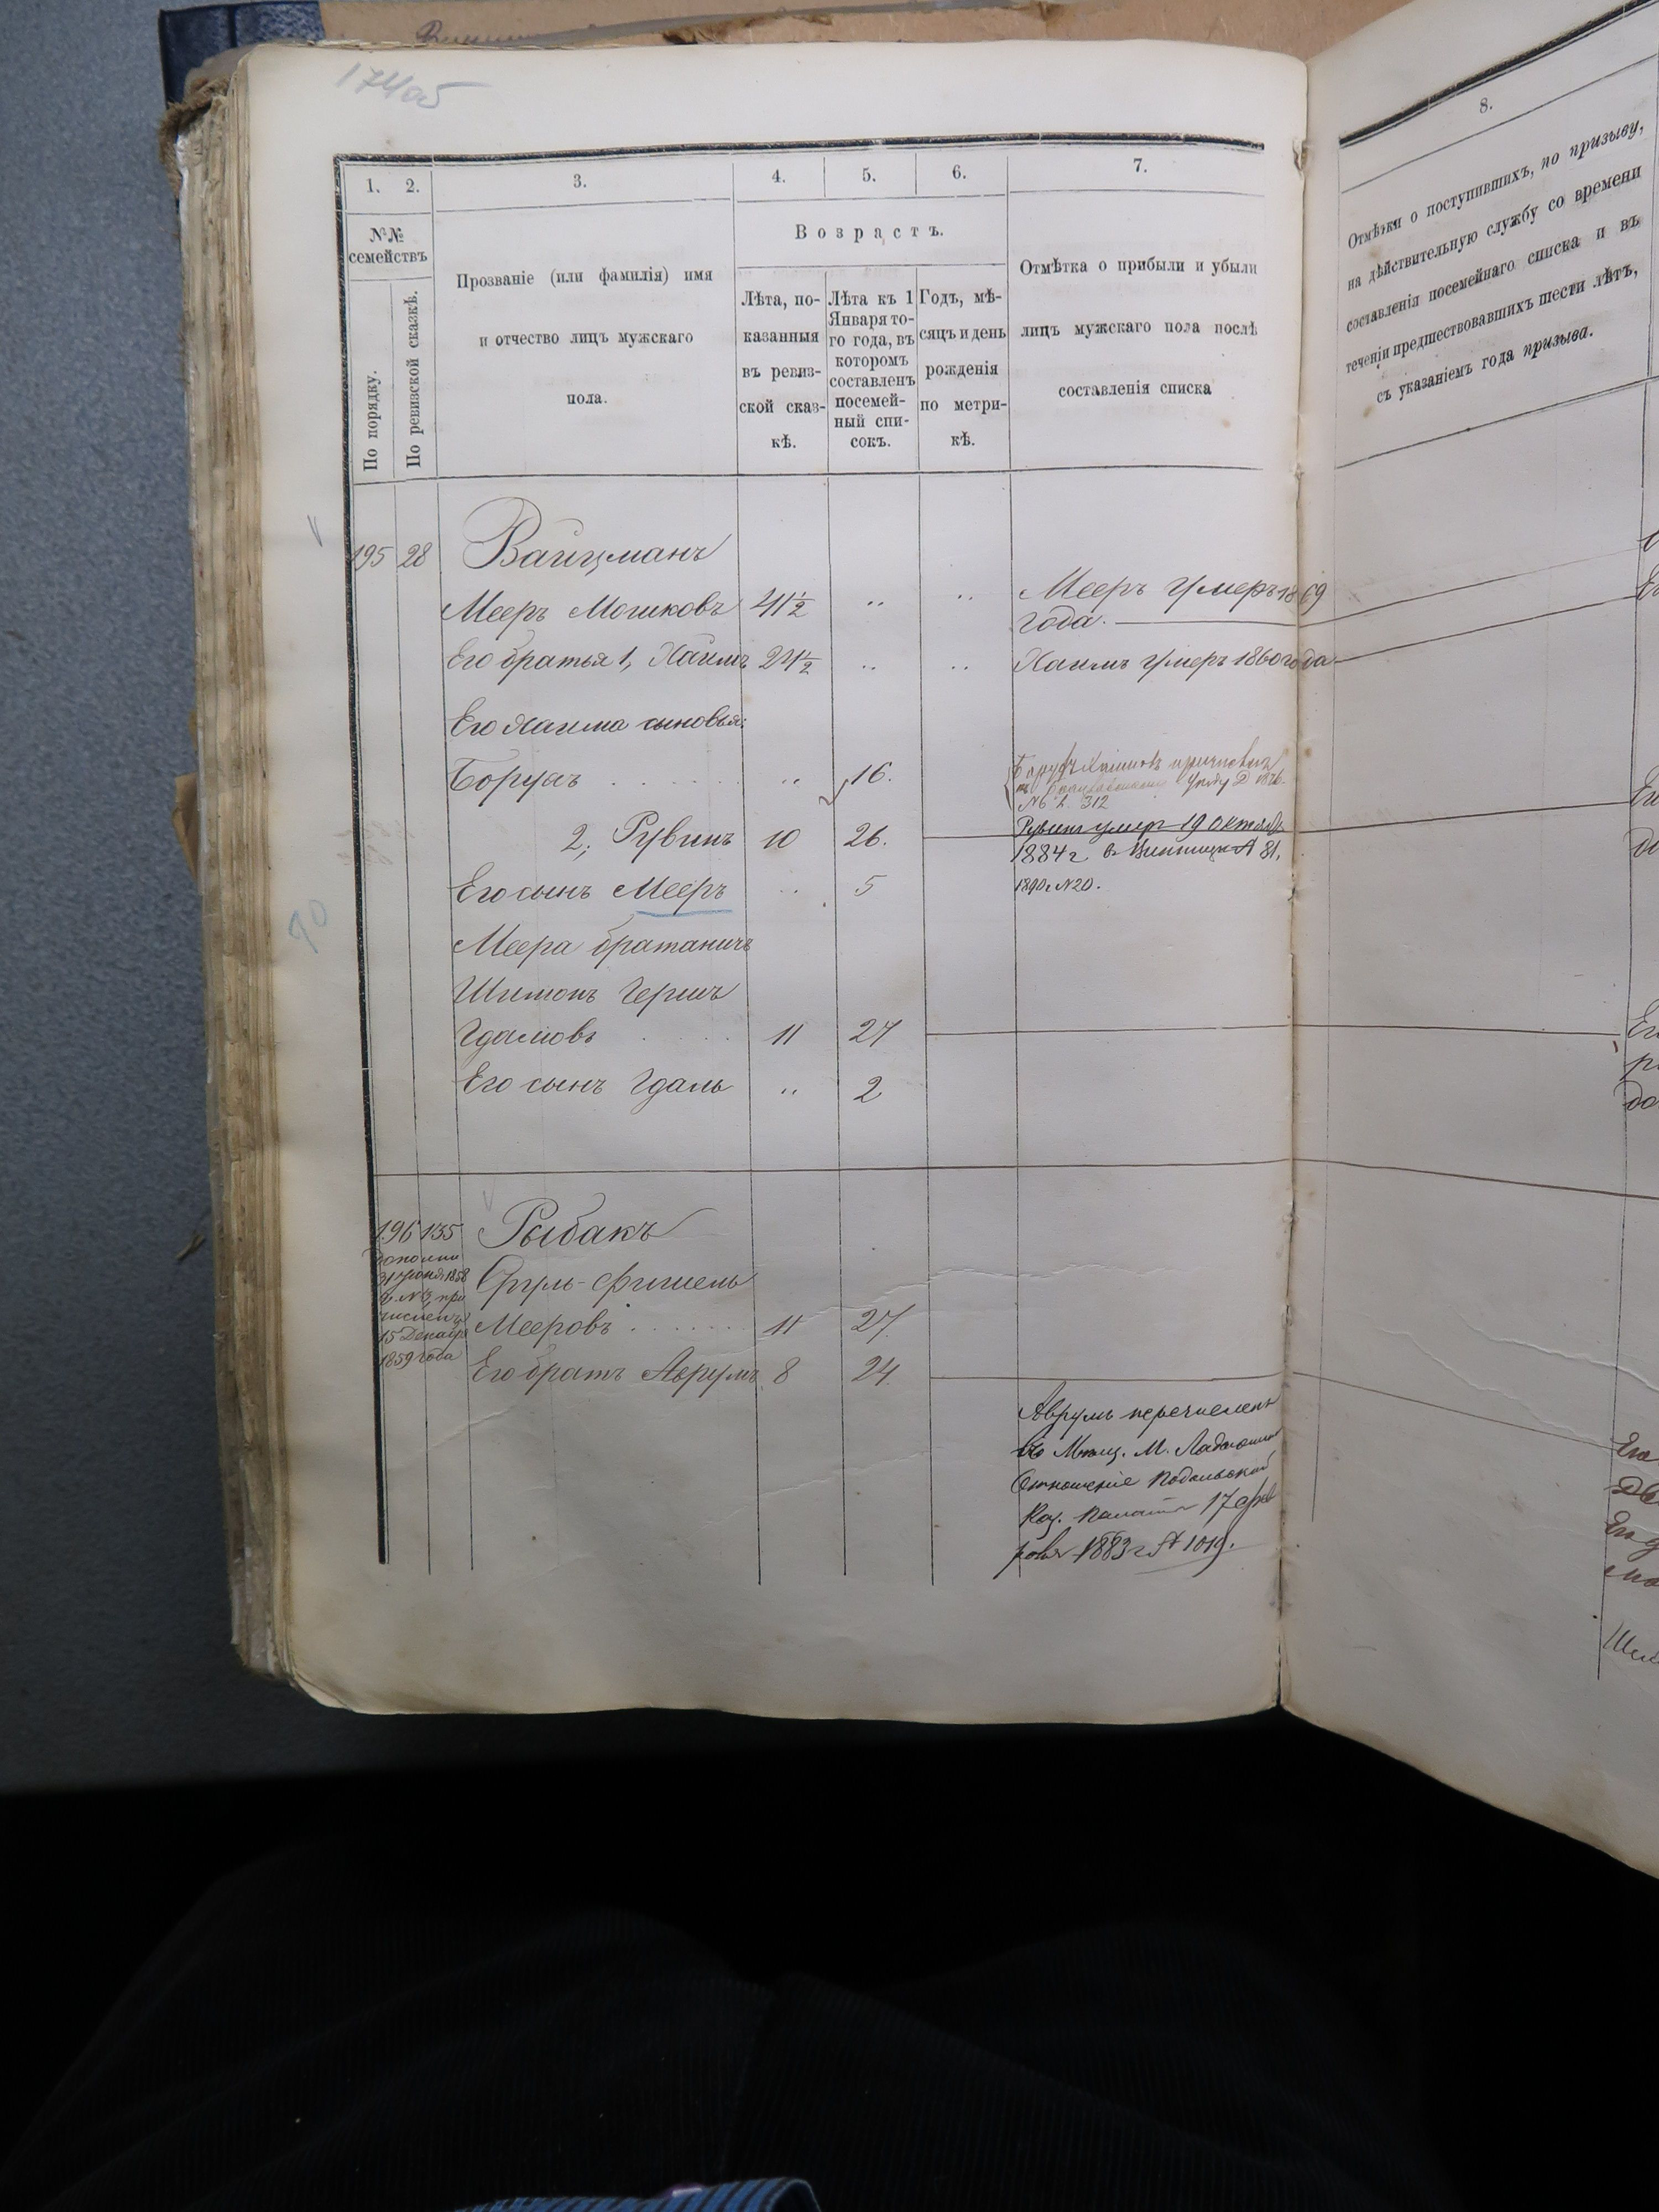 174об
1. 2. 3. 4. 5. 6. 7.
№№ семействъ
По порядку.
По ревизской сказкѣ.
Прозваніе (или фамилія) имя
и отчество лицъ мужскаго
пола.
Возрастъ.
Лѣта, по-
казанныя
въ ревиз-
ской сказ-
кѣ.
Лѣта къ 1
Января то-
го года, въ
котором
составленъ
посемей-
ный спи-
сокъ.
Годъ, мѣ-
сяцъ и день
рожденія
по метри-
кѣ.
Отмѣтка о прибыли и убыли
лицъ мужскаго пола послѣ
составленія списка
195 28 Вайцманъ
Мееръ Мошковъ 41½ " " Мееръ умеръ 1869
года.
Его братья 1, Хаимъ 24½ " " Хаимъ умеръ 1860 года
Его Хаима сыновья:
Борухъ " 16. Борухъ Хаимовъ
№ 312
2, Рувинъ 10 26. Рувинъ умер 19 Октября
1884 г. в Винница А 81,
Его сынъ Мееръ " 5 1890 г. №20.
Меера братаничъ
Шимонъ Гершъ
Гдалiовъ 11 27
Его сынъ Гдаль " 2
90
196 135 Рыбакъ
31 1858
г. №3, при
численъ
15 Декабр
1859 года
Фишель
Мееровъ 11 27.
Его братъ Аврумъ 8 24
Аврумъ перечисленъ
въ Мѣщ. М.
Отношеніе Подольской
Каз. Палаты 17 Фев
раля 1883 г. № 1019.
8.
Отмѣтки о поступившихъ, по призыву,
на дѣйствительную службу со времени
составленія посемейнаго списка и въ
теченіи предшествовавшихъ шести лѣтъ,
съ указаніемъ года призыва.